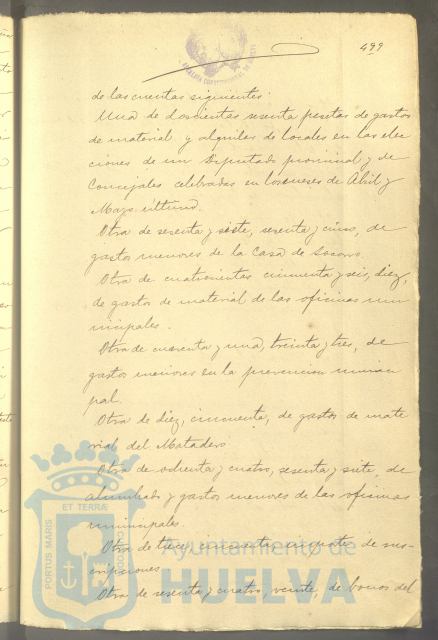 499
de las cuentas siguientes:
Una de doscientas sesenta pesetas de gastos
de material y alquiler de locales en las elec
ciones de un Diputado provincial y de
Concejales celebradas en los meses de Abril y
Mayo último.
Otra de sesenta y siete, sesenta y cinco, de
gastos menores de la Casa de Socorro.
Otra de cuatrocientas cincuenta y seis, diez,
de gastos de material de las oficinas mu
nicipales.
Otra de cuarenta y una, treinta y tres, de
gastos menores en la prevencion munici
pal.
Otra de diez, cincuenta, de gastos de mate
rial del Matadero.
Otra de ochenta y cuatro, sesenta y siete, de
alumbrado y gastos menores de las oficinas
municipales.
Otra de trece, cincuenta, de sus-
cripciones.
Otra de sesenta y cuatro, veinte, de bonos del
PORTUS MARIS
ET TERRÆ
CUSTODIA
Ayuntamiento de
HUELVA